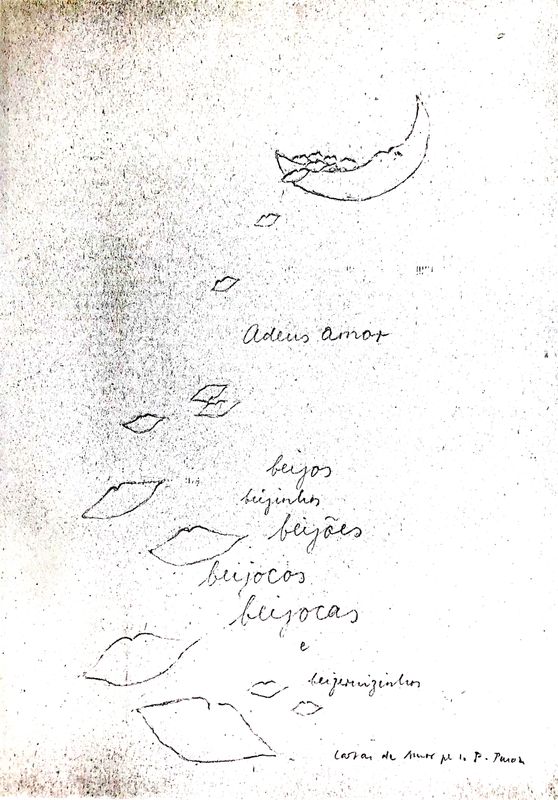 Adeus amor
beijos
beijinhos
beijões
beijocos
beijocas
e
beijernizinhos
Cartas de Amor